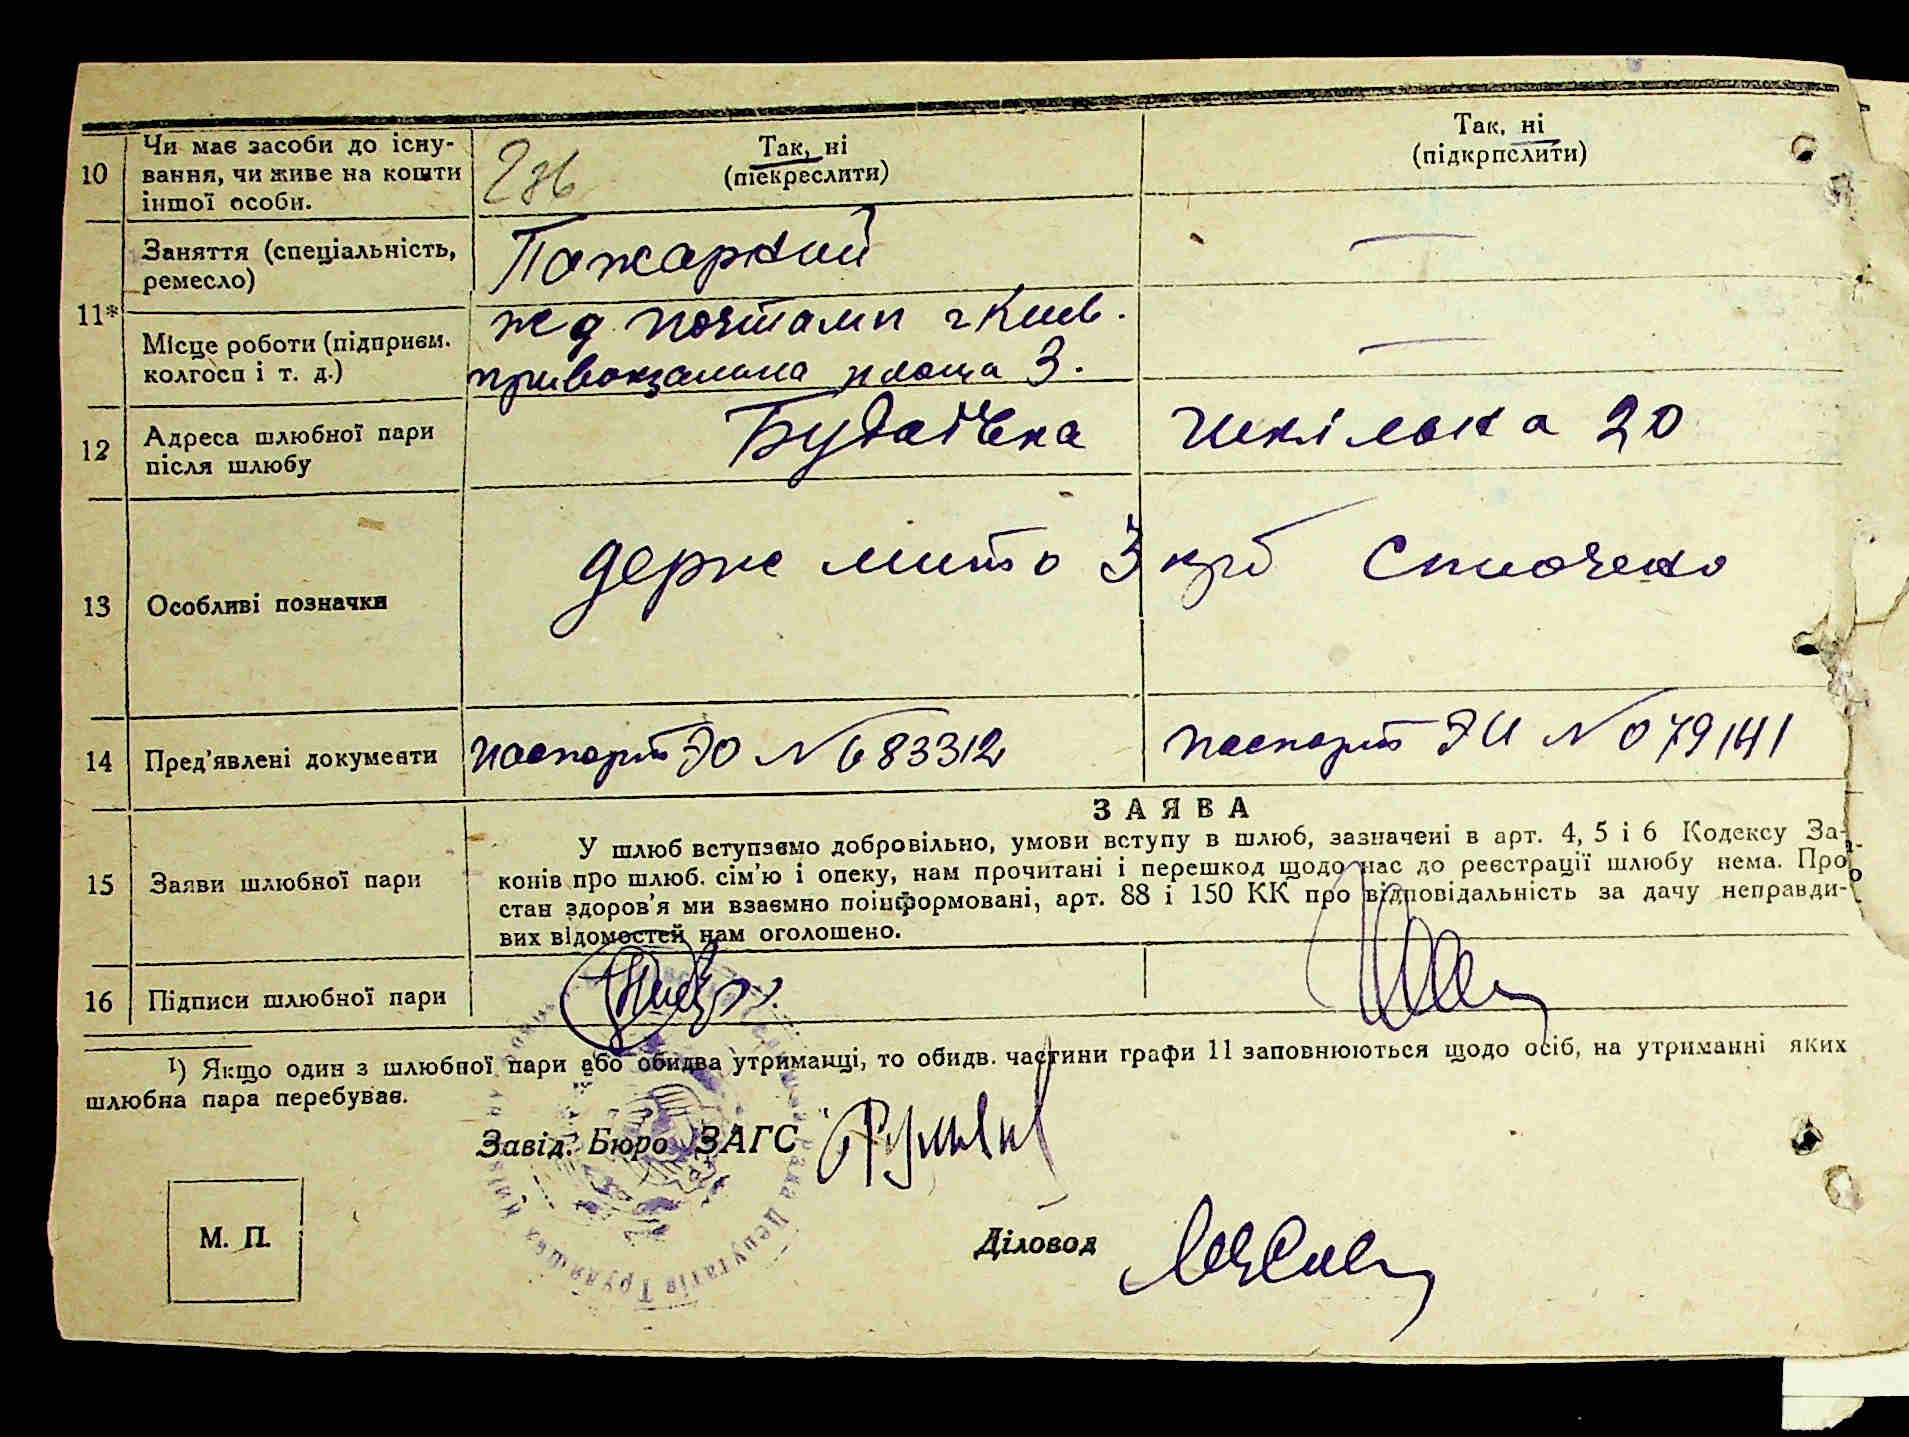 10 Чи має засоби до існу- Так, ні Так, ні
вання, чи живе на кошти (піекреслити) (підкрпслити)
іншої особи.
Заняття (спеціальність, Пожарний —
ремесло)
11*
Місце роботи (підприєм. жд почтамп г Київ. —
колгосп і т. д.) привокзальна площа 3.
12 Адреса шлюбної пари Будаївка Шкільна 20
після шлюбу
13 Особливі позначки держ мито 3 крб
14 Пред'явлені документи паспорт ЭО № 683312 паспорт ЭИ № 079141
ЗАЯВА
15 Заяви шлюбної пари
У шлюб вступаємо добровільно, умови вступу в шлюб, зазначені в арт. 4, 5 і 6 Кодексу За-
конів про шлюб. сім'ю і опеку, нам прочитані і перешкод щодо нас до реєстрації шлюбу нема. Про
стан здоров'я ми взаємно поінформовані, арт. 88 і 150 КК про відповідальність за дачу неправди-
вих відомостей нам оголошено.
16 Підписи шлюбної пари
¹) Якщо один з шлюбної пари або обидва утриманці, то обидв. частини графи 11 заповнюються щодо осіб, на утриманні яких
шлюбна пара перебуває.
Завід. Бюро ЗАГС
М. П.
Діловод
Депутатів Трудящих